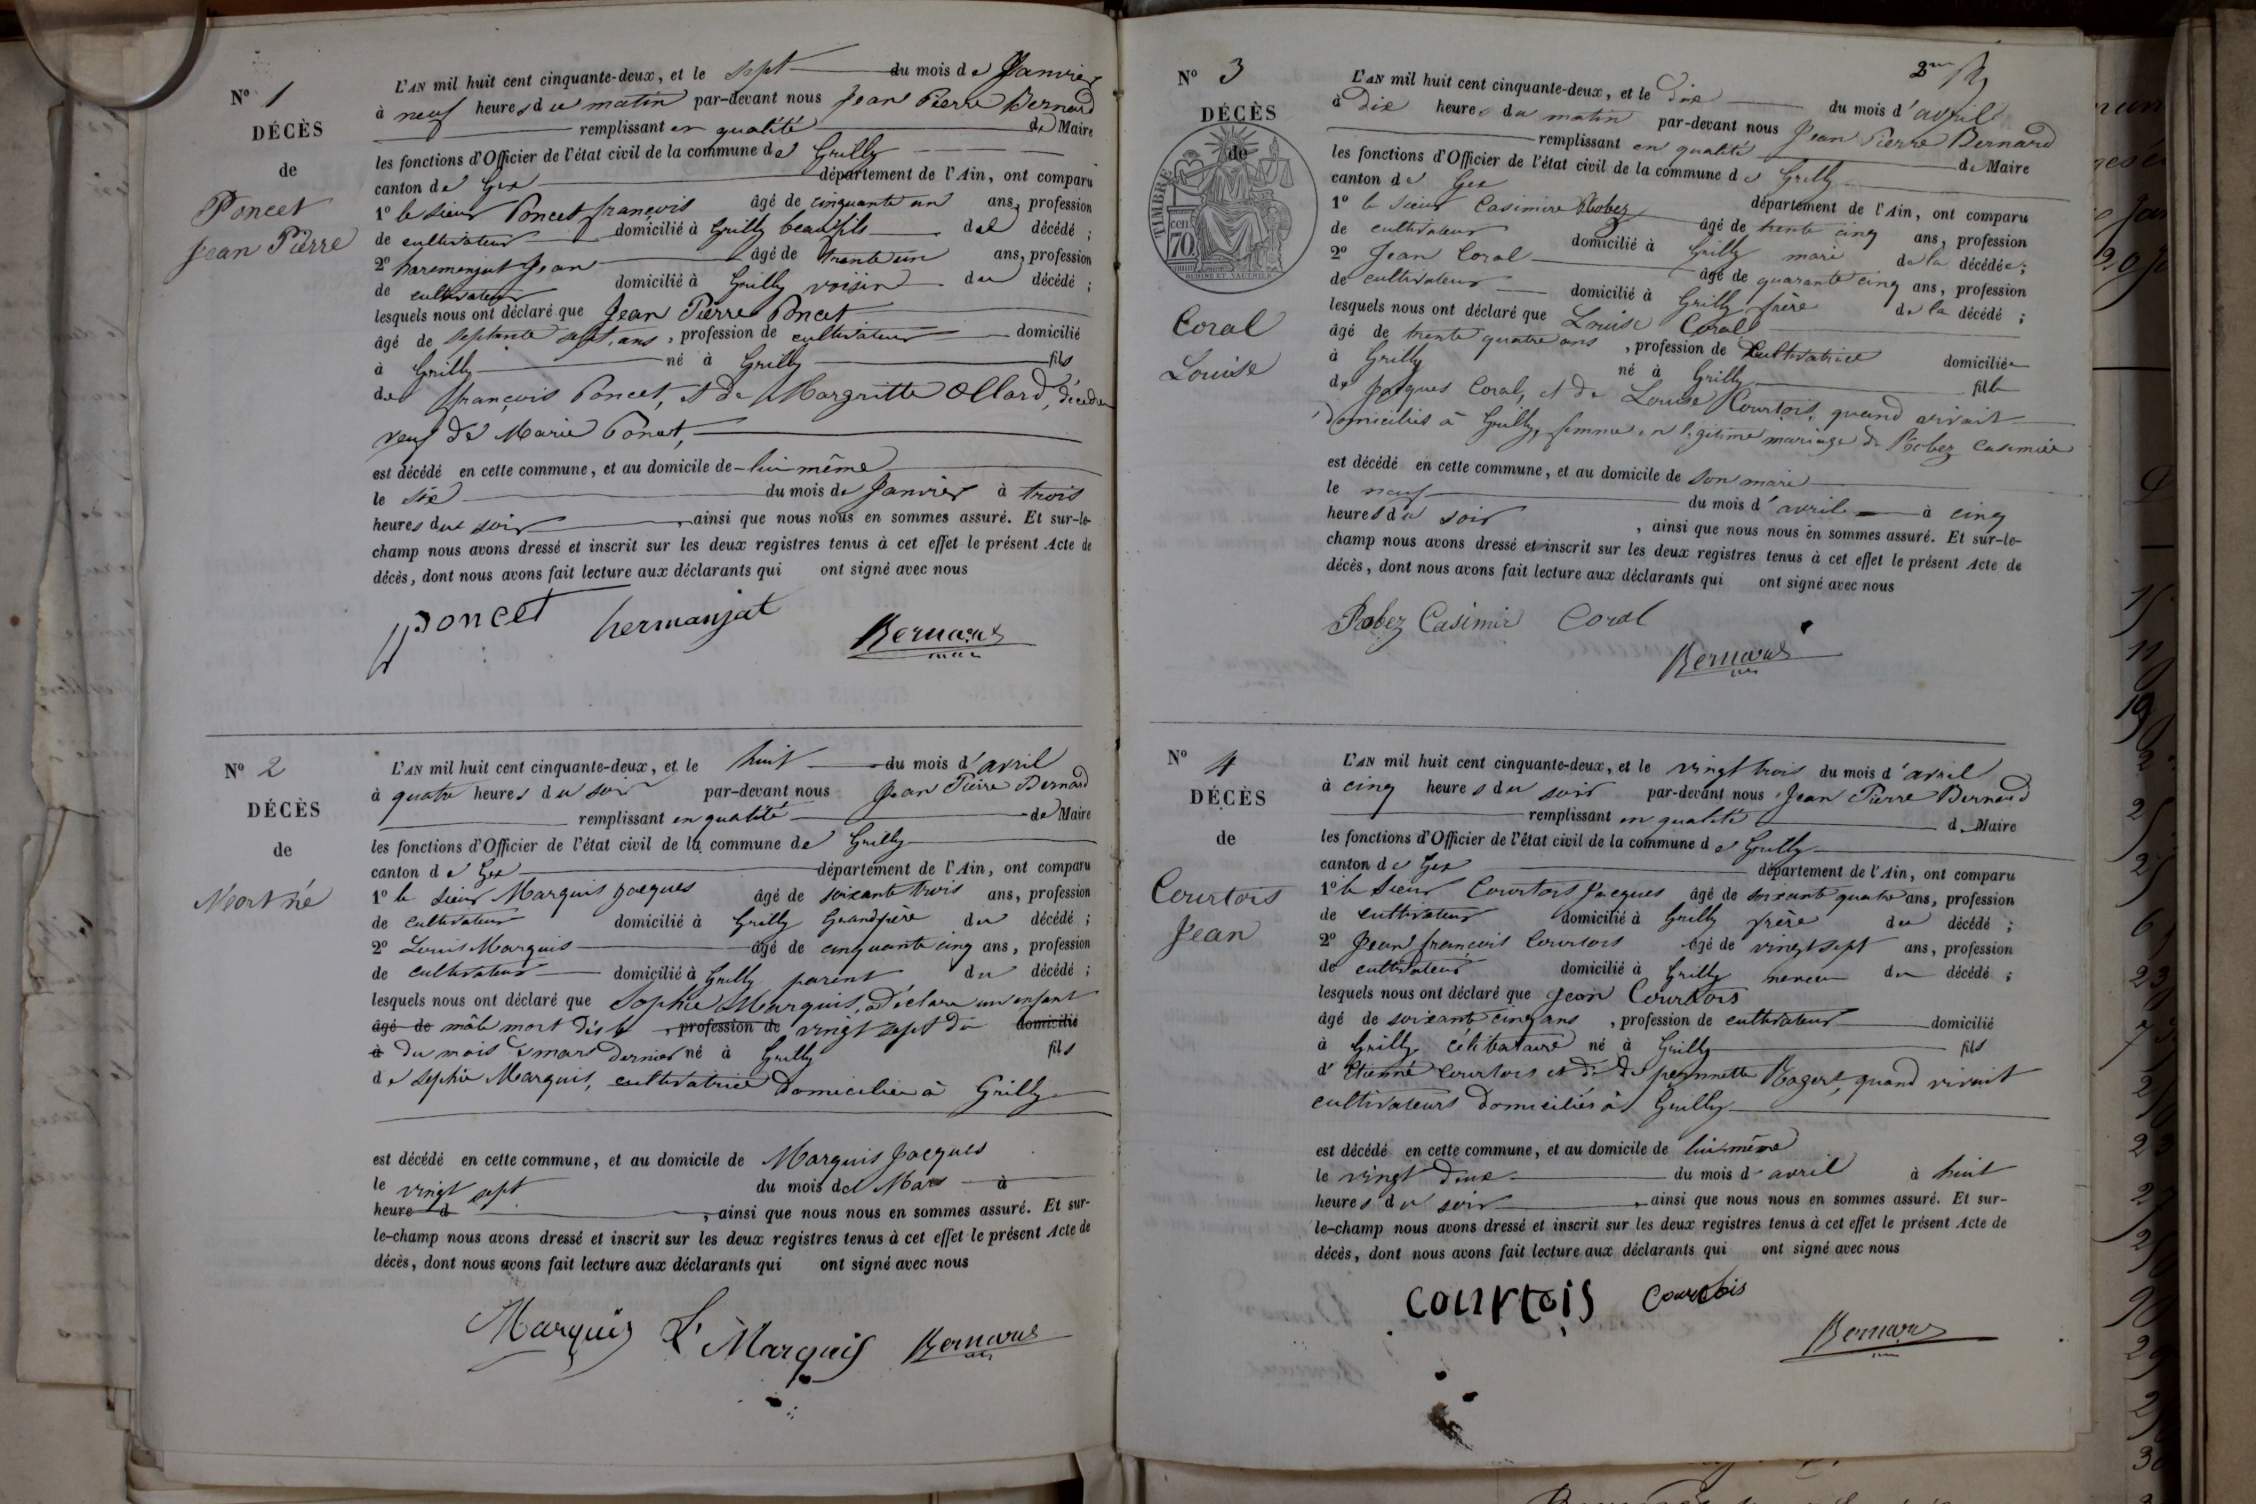 N° 1
DÉCÈS
de
Poncet
Jean Pierre
L'AN mil huit cent cinquante-deux, et le sept du mois de Janvier
à neuf heures du matin par-devant nous Jean Pierre Bernard
remplissant en qualité de Maire
les fonctions d'Officier de l'état civil de la commune de Grilly
canton de Gex département de l'Ain, ont comparu
1° le sieur Poncet françois âgé de cinquante un ans, profession
de cultivateur domicilié à Grilly beaufils del décédé ;
2° haremenjat Jean âgé de trente un ans, profession
de cultivateur domicilié à Grilly voisin du décédé ;
lesquels nous ont déclaré que Jean Pierre Poncet
âgé de septante sept ans, profession de cultivateur domicilié
à Grilly né à Grilly fils
de françois Poncet, et de Margritte Ollard, décédés
veuf de Marie Poncet,
est décédé en cette commune, et au domicile de lui même
le six du mois de Janvier à trois
heures du soir, ainsi que nous nous en sommes assuré. Et sur-le-
champ nous avons dressé et inscrit sur les deux registres tenus à cet effet le présent Acte de
décès, dont nous avons fait lecture aux déclarants qui ont signé avec nous
Poncet hermanjat Bernard
N° 2
DÉCÈS
de
Mort né
L'AN mil huit cent cinquante-deux, et le huit du mois d'avril
à quatre heures du soir par-devant nous Jean Pierre Bernard
remplissant en qualité de Maire
les fonctions d'Officier de l'état civil de la commune de Grilly
canton de Gex département de l'Ain, ont comparu
1° le sieur Marquis Jacques âgé de soixante trois ans, profession
de cultivateur domicilié à Grilly Grandpère du décédé ;
2° Louis Marquis âgé de cinquante cinq ans, profession
de cultivateur domicilié à Grilly parent du décédé ;
lesquels nous ont déclaré que Sophie Marquis, a déclare un enfant
âgé de mâle mort dès le , profession de vingt sept du domicilié
à du mois de mars dernier né à Grilly fils
de Sophie Marquis, cultivatrice domiciliée à Grilly
est décédé en cette commune, et au domicile de Marquis Jacques
le vingt sept du mois de Mars à
heure d , ainsi que nous nous en sommes assuré. Et sur-
le-champ nous avons dressé et inscrit sur les deux registres tenus à cet effet le présent Acte de
décès, dont nous avons fait lecture aux déclarants qui ont signé avec nous
Marquis L' Marquis Bernard
N° 3
DÉCÈS
de
TIMBRE
70
Coral
Louise
L'AN mil huit cent cinquante-deux, et le dix du mois d'avril
à dix heures du matin par-devant nous Jean Pierre Bernard
remplissant en qualité de Maire
les fonctions d'Officier de l'état civil de la commune de Grilly
canton de Gex département de l'Ain, ont comparu
1° le sieur Casimire Robez âgé de trente cinq ans, profession
de cultivateur domicilié à Grilly mari de la décédée ;
2° Jean Coral âgé de quarante cinq ans, profession
de cultivateur domicilié à Grilly frère de la décédé ;
lesquels nous ont déclaré que Louise Coral
âgé de trente quatre ans, profession de Cultivatrice domiciliée
à Grilly né à Grilly fille
de Jacques Coral, et de Louise Courtois, quand vivait
domiciliés à Grilly, femme en légitime mariage de Robez Casimire
est décédé en cette commune, et au domicile de son mari
le neuf du mois d'avril à cinq
heures du soir, ainsi que nous nous en sommes assuré. Et sur-le-
champ nous avons dressé et inscrit sur les deux registres tenus à cet effet le présent Acte de
décès, dont nous avons fait lecture aux déclarants qui ont signé avec nous
Robez Casimir Coral
Bernard
N° 4
DÉCÈS
de
Courtois
Jean
L'AN mil huit cent cinquante-deux, et le vingt trois du mois d'avril
à cinq heures du soir par-devant nous Jean Pierre Bernard
remplissant en qualité de Maire
les fonctions d'Officier de l'état civil de la commune de Grilly
canton de Gex département de l'Ain, ont comparu
1° le Sieur Courtois Jacques âgé de soixante quatre ans, profession
de cultivateur domicilié à Grilly frère du décédé ;
2° Jean françois Courtois âgé de vingt sept ans, profession
de cultivateur domicilié à Grilly neveu du décédé ;
lesquels nous ont déclaré que Jean Courtois
âgé de soixante cinq ans, profession de cultivateur domicilié
à Grilly célibataire né à Grilly fils
d'Etienne Courtois et de de pernnette Rogert, quand vivait
cultivateurs domiciliés à Grilly
est décédé en cette commune, et au domicile de lui même
le vingt deux du mois d'avril à huit
heures du soir, ainsi que nous nous en sommes assuré. Et sur-
le-champ nous avons dressé et inscrit sur les deux registres tenus à cet effet le présent Acte de
décès, dont nous avons fait lecture aux déclarants qui ont signé avec nous
Courtois Courtois
Bernard